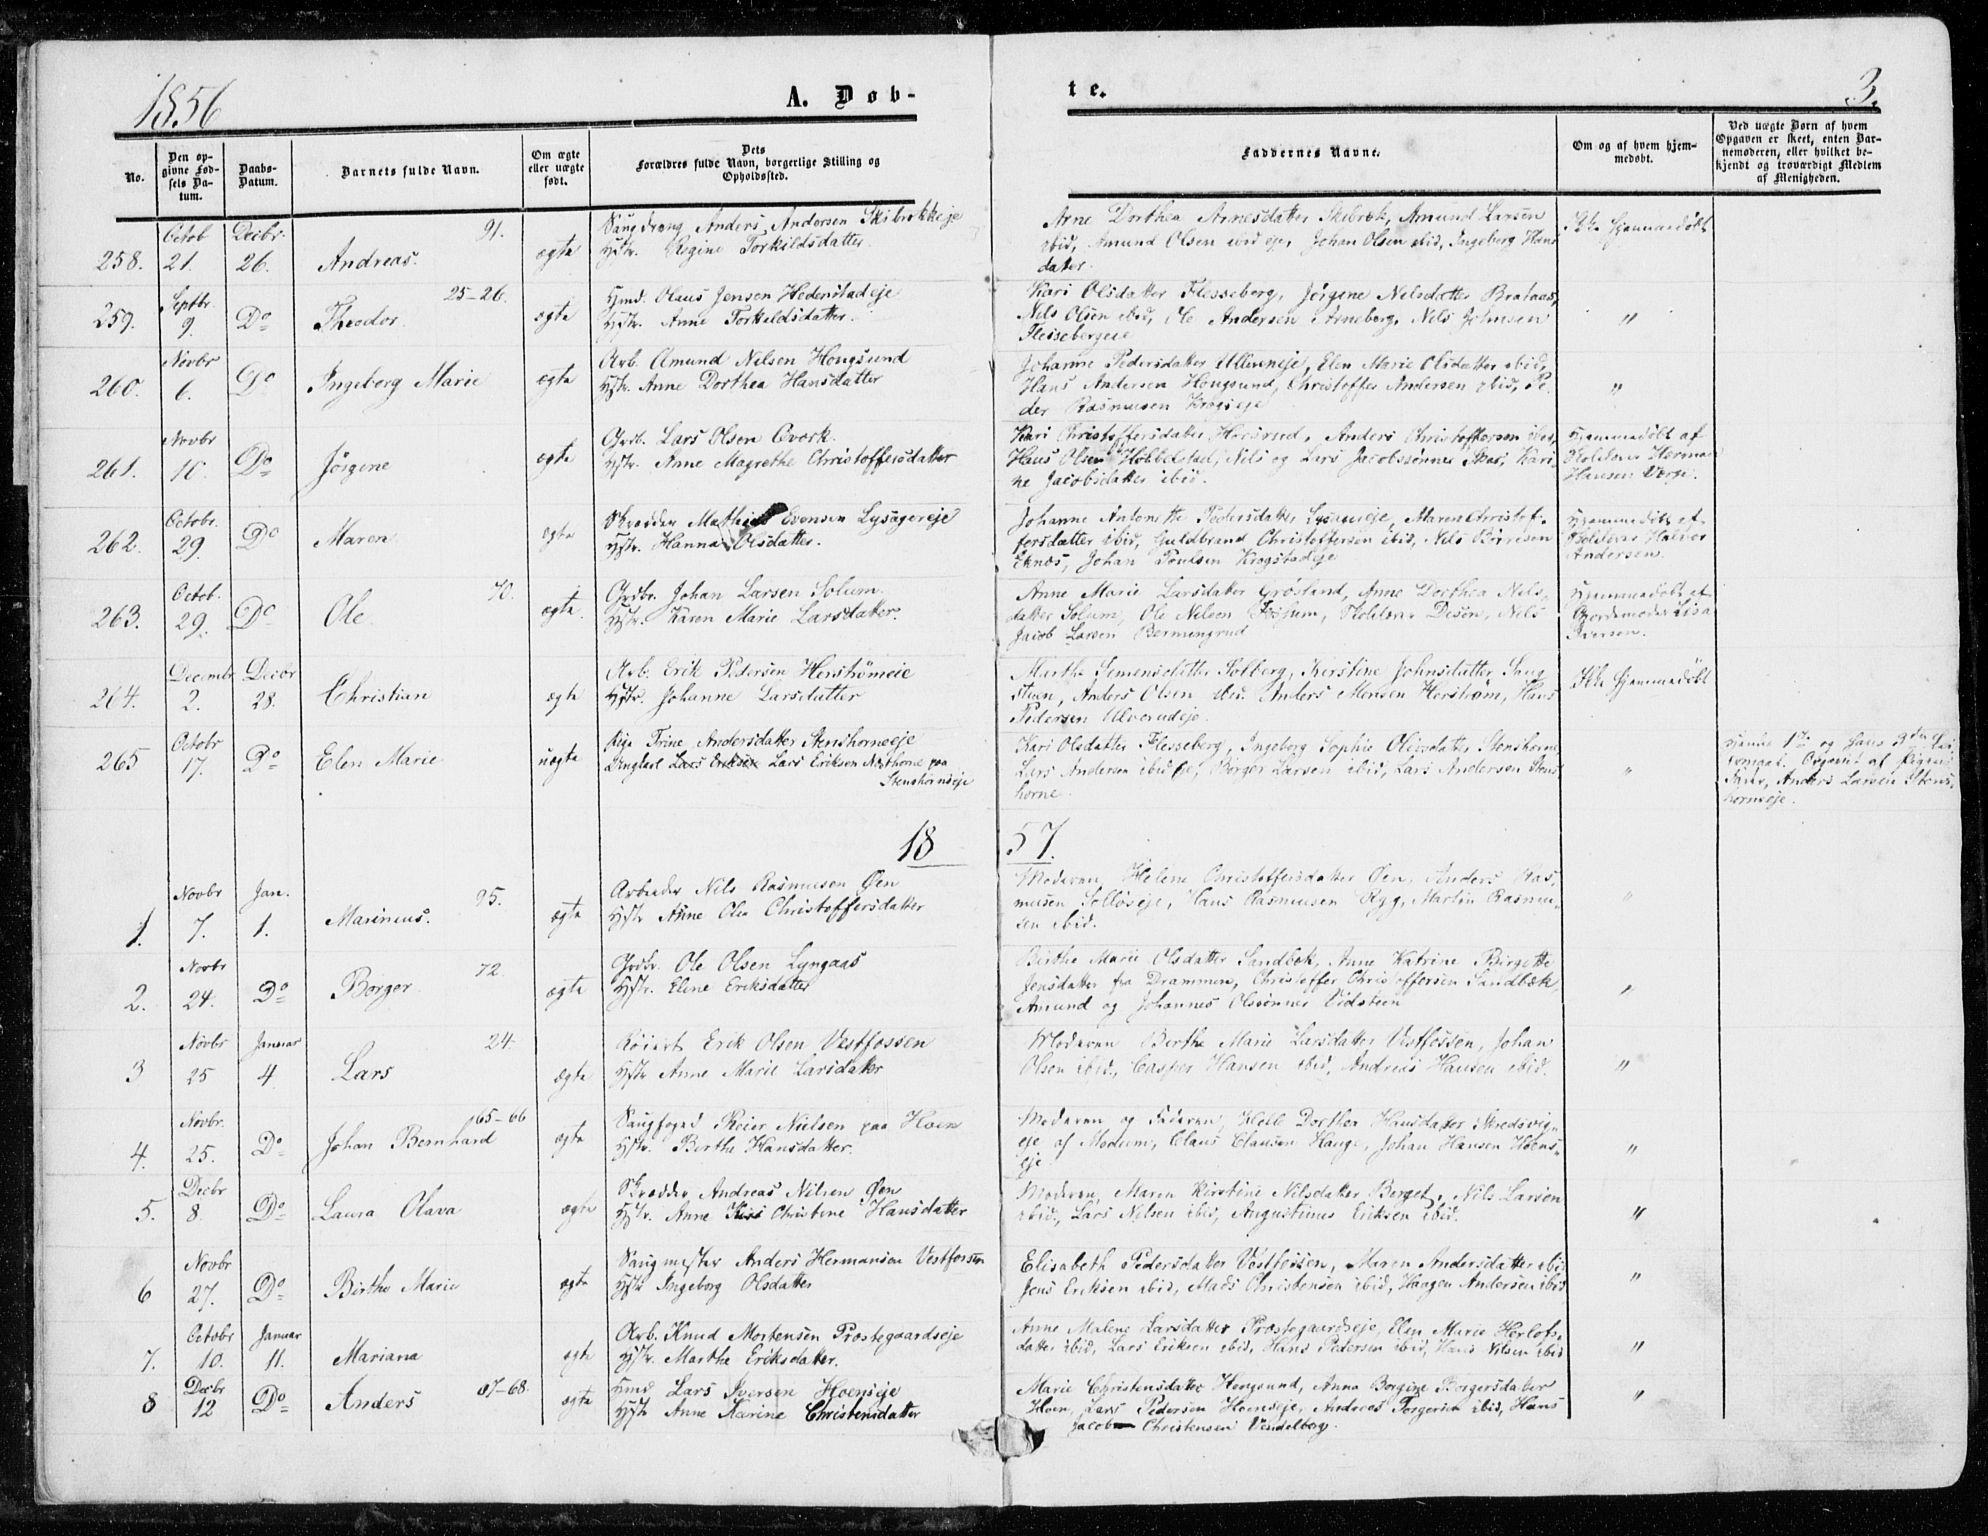 1856
A. Døb-
te.
3.
No.
Den op-
givne Fød-
sels Da-
tum.
Daabs-
Datum.
Barnets fulde Navn.
Om ægte
eller uægte
født.
Dets
Forældres fulde Navn, borgerlige Stilling og
Opholdssted.
Faddernes Navne.
Om og af hvem hjem-
medøbt.
Ved uægte Børn af hvem
Opgaven er skeet, enten Bar-
nemoderen, eller hvilket be-
kjendt og troværdigt Medlem
af Menigheden.
258. Octob 21. Decbr. 26. Andreas. 91. ægte
Saugdreng Anders Andersen Skibrekkeje
Hstr. Regine Torkildsdatter.
Arne Dorthea Arnesdatter Skibrek, Amund Larsen
ibid, Amund Olsen ibid eje, Johan Olsen ibid, Ingeborg Hans
datter.
Ikke hjemmedøbt
259. Septbr. 9. Do Theodor. 25-26. ægte
Hmd. Olaus Jensen Hedenstadeje
Hstr. Anne Torkildsdatter.
Kari Olsdatter Flesseberg, Jørgine Nilsdatter Brataas,
Nils Olsen ibid, Ole Andersen Arneberg, Nils Johnsen
Flessebergeie
"
260. Novbr 6. Do Ingeborg Marie ægte
Arb. Amund Nilsen Hougsund
Hstr. Anne Dorthea Hansdatter
Johanne Pedersdatter Ullerneje, Elen Marie Olsdatter ibid,
Hans Andersen Hougsund, Christoffer Andersen ibid, Pe-
der Rasmusen Krogseje
"
261. Novbr 10. Do Jørgine ægte
Grdb. Lars Olsen Qværk.
Hstr. Anne Magrethe Christoffersdatter
Kari Christoffersdatter Horsrud, Anders Christoffersen ibid,
Hans Olsen Hobbelstad, Nils og Lars Jacobssønner Skar, Kari-
ne Jacobsdatter ibid.
Hjemmedøbt af
Skolelærer Herman
Hansen Varge.
262. Octobr. 29. Do Maren ægte
Skrædder Mathias Evensen Lysagereje
Hstr. Hanna Olsdatter.
Johanne Antonette Pedersdatter Lysagereje, Maren Christof-
fersdatter ibid, Guldbrand Christoffersen ibid, Nils Børresen
Eknes, Johan Poulsen Krogstadeje
Hjemmedøbt af
Skolelærer Halvor
Andersen.
263. Octob. 29. Do Ole 70. ægte
Grdbr. Johan Larsen Solum.
Hstr. Karen Marie Larsdatter.
Anne Marie Larsdatter Grøsland, Anne Dorthea Nils-
datter Solum, Ole Nilsen Fossum, Skolelærer Desen, Nils
Jacob Larsen Bermingrud
Hjemmedøbt af
Gjordemoder Lisa
Iversen.
264. Decembr 2. Decbr 28. Christian ægte
Arb. Erik Pedersen Herstrømeie
Hstr. Johanne Larsdatter
Marthe Simensdatter Solberg, Kirstine Johnsdatter Saug
stuen, Anders Olsen ibid. Anders Monsen Herstrøm, Hans
Pedersen Ulverudeje.
Ikke hjemmedøbt
265 Octobr 17. Do Elen Marie uægte
Pige Trine Andersdatter Stenshorneeje
Ungkarl Lars Eriksen Lars Eriksen Næsthorne paa
Stenshorneeje
Kari Olsdatter Flesseberg, Ingeborg Sophie Olsdatter Stenshorne,
Lars Andersen ibid eje, Børger Larsen ibid, Lars Andersen Stens
horne.
"
Hendes 1ste og hans 3die Lei-
ermaal. Opgivet af Pigens
Fader, Anders Larsen Stens-
horneeje.
1857.
1. Novbr 7. Jan. 1. Marinius. 95. ægte
Arbeider Nils Rasmusen Øen
Hstr Anne Olea Christoffersdatter
Moderen, Helene Christoffersdatter Øen, Anders Ras-
musen Solløseje, Hans Rasmusen Ryg, Martin Rasmu-
sen ibid.
"
2. Novbr 24. Do Børger 72 ægte
Grdbr. Ole Olsen Lyngaas
Hstr. Eline Eriksdatter
Birthe Marie Olsdatter Sandbek, Anne Katrine Birgette
Jensdatter fra Drammen, Christoffer Christoffersen Sandbæk,
Amund og Johannes Olssønner Vidsteen
"
3 Novbr 25 Januar 4. Lars 24. ægte
Røiert Erik Olsen Vestfossen
Hstr Anne Marie Larsdatter
Moderen Berthe Marie Larsdatter Vestfossen, Johan
Olsen ibid., Casper Hansen ibid, Andreas Hansen ibid.
"
4. Novbr. 25. Do Johan Bernhard 65-66 ægte
Saugfoged Reier Nielsen paa Hoen
Hstr. Birthe Hansdatter.
Moderen og Faderen, Helle Dorthea Hansdatter Skredsvig-
eje af Modum, Claus Clausen Hauge, Johan Hansen Hoens-
eje
"
5. Decbr 8. Do Laura Olava ægte
Skrædder Andreas Nilsen Øen
Hstr. Anne Christine Hansdatter
Moderen, Maren Kirstine Nilsdatter Berget, Nils Larsen
ibid., Lars Nilsen ibid, Augustinus Eriksen ibid.
"
6 Novbr 27. Do Birthe Marie ægte
Saugmester Anders Hermansen Vestfossen
Hstr Ingeborg Olsdatter
Elisabeth Pedersdatter Vestfossen, Maren Andersdatter ibid
Jens Eriksen ibid, Mads Christensen ibid, Haagen Andersen ibid
"
7. Octobr 10. Januar 11. Mariana ægte
Arb. Knud Mortensen Prostegaardseje
Hstr. Marthe Eriksdatter.
Anne Malene Larsdatter Præstegaardseje, Elen Marie Herlofs-
datter ibid, Lars Eriksen ibid, Hans Pedersen ibid, Hans Nilsen ibid
"
8 Decbr 12 Do Anders 67-68. ægte
Hmd Lars Iversen Hoenseje
Hstr Anne Karine Christensdatter
Marie Christensdatter Hougsund, Anna Borgine Borgersdatter
Hoen, Lars Pedersen Hoenseje, Andreas Torgersen ibid, Hans
Jacob Christensen Vendelborg.
"